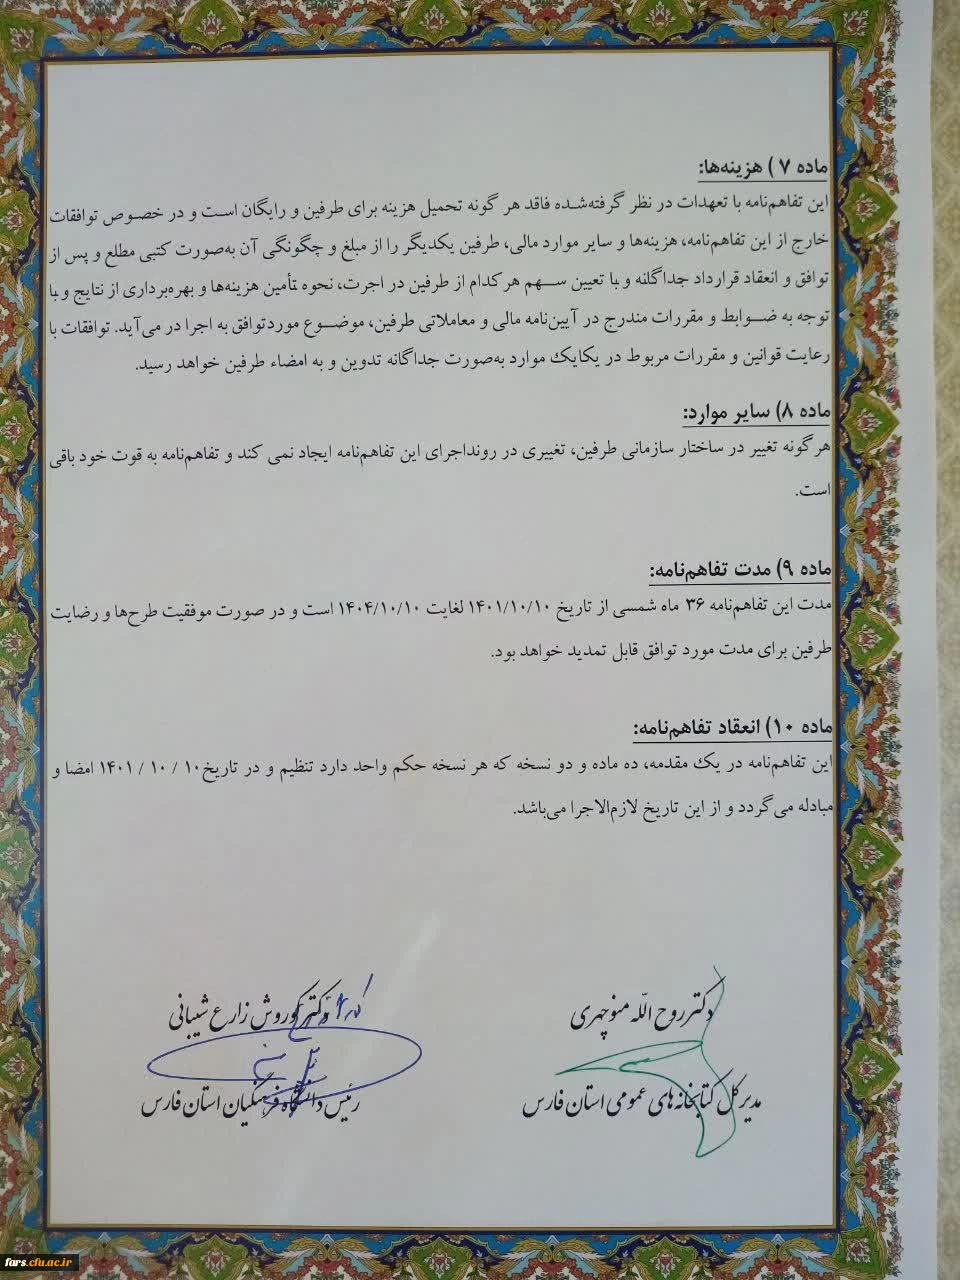 ماده ۷ ) هزینه‌ها:
این تفاهم‌نامه با تعهدات در نظر گرفته‌شده فاقد هر گونه تحمیل هزینه برای طرفین و رایگان است و در خصوص توافقات
خارج از این تفاهم‌نامه، هزینه‌ها و سایر موارد مالی، طرفین یکدیگر را از مبلغ و چگونگی آن به‌صورت کتبی مطلع و پس از
توافق و انعقاد قرارداد جداگانه و با تعیین سهم هرکدام از طرفین در اجرت، نحوه تأمین هزینه‌ها و بهره‌برداری از نتایج و با
توجه به ضوابط و مقررات مندرج در آیین‌نامه مالی و معاملاتی طرفین، موضوع موردتوافق به اجرا در می‌آید. توافقات با
رعایت قوانین و مقررات مربوط در یکایک موارد به‌صورت جداگانه تدوین و به امضاء طرفین خواهد رسید.
ماده ۸) سایر موارد:
هرگونه تغییر در ساختار سازمانی طرفین، تغییری در رونداجرای این تفاهم‌نامه ایجاد نمی کند و تفاهم‌نامه به قوت خود باقی
است.
ماده ۹) مدت تفاهم‌نامه:
مدت این تفاهم‌نامه ۳۶ ماه شمسی از تاریخ ۱۴۰۱/۱۰/۱۰ لغایت ۱۴۰۴/۱۰/۱۰ است و در صورت موفقیت طرح‌ها و رضایت
طرفین برای مدت مورد توافق قابل تمدید خواهد بود.
ماده ۱۰) انعقاد تفاهم‌نامه:
این تفاهم‌نامه در یک مقدمه، ده ماده و دو نسخه که هر نسخه حکم واحد دارد تنظیم و در تاریخ۱۰ / ۱۰ / ۱۴۰۱ امضا و
مبادله می‌گردد و از این تاریخ لازم‌الاجرا می‌باشد.
دکتر روح الله منوچهری
مدیر کل کتابخانه های عمومی استان فارس
دکتر کوروش زارع شیبانی
رئیس دانشگاه فرهنگیان استان فارس
fars.cfu.ac.ir